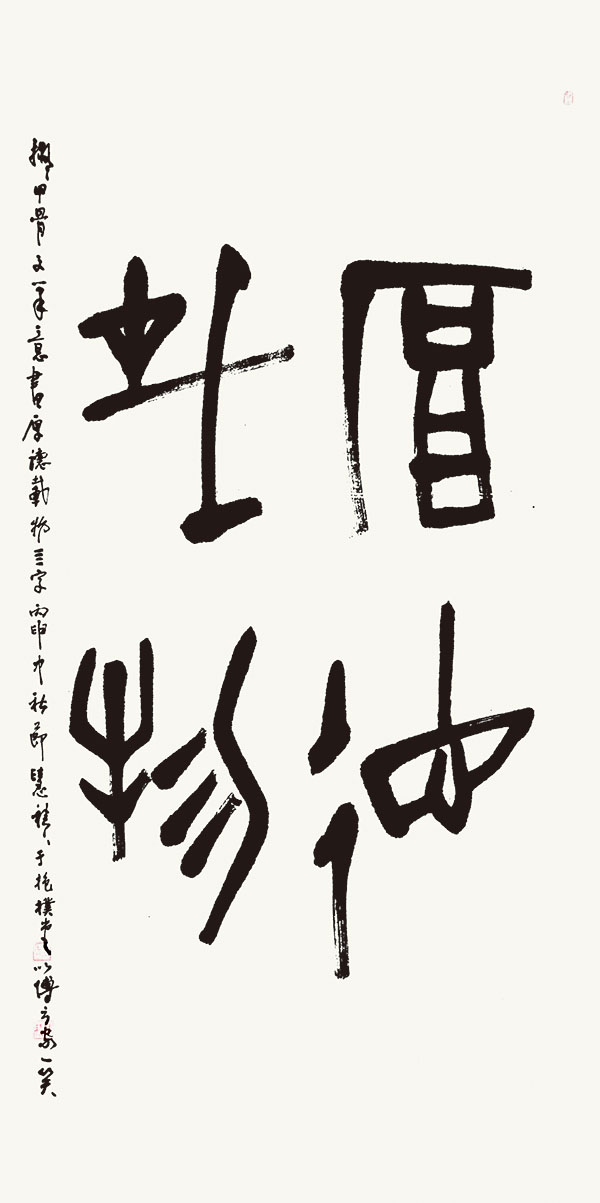 厚德
载物
拟甲骨文笔意書厚德載物三字丙申中秋節慧禅于抱樸堂以博方家一笑